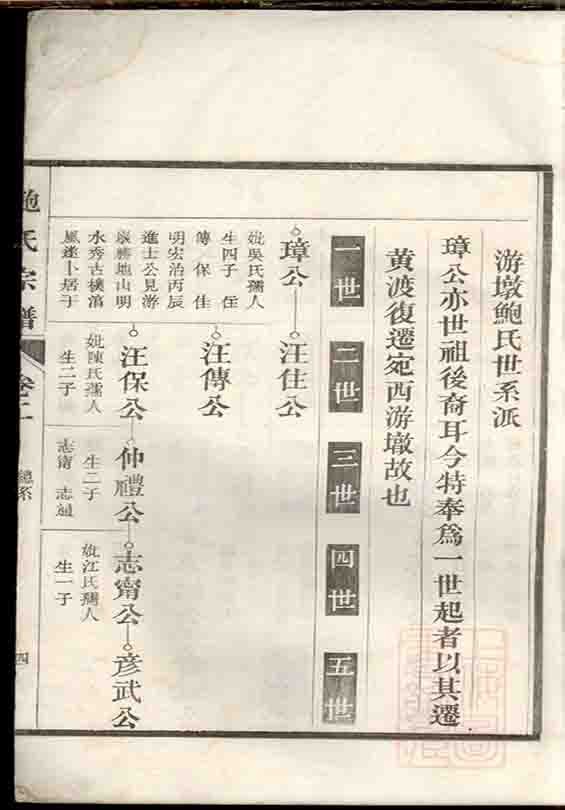 游墩鮑氏世系派
璋公亦世祖後裔耳今特奉爲一世起者以其遷
黃渡復遷宛西游墩故也
一世 二世 三世 四世 五世
璋公 汪住公
妣吳氏孺人
生四子 住
傳 保 佳
明宏治丙辰
進士公見游
墩勝地山明
水秀古樸淳
風遂卜居于
汪傳公
汪保公 仲禮公 志甯公 彥武公
妣陳氏孺人
生二子
生二子
志甯 志通
妣江氏孺人
生一子
鮑氏宗譜
卷二
總系
四